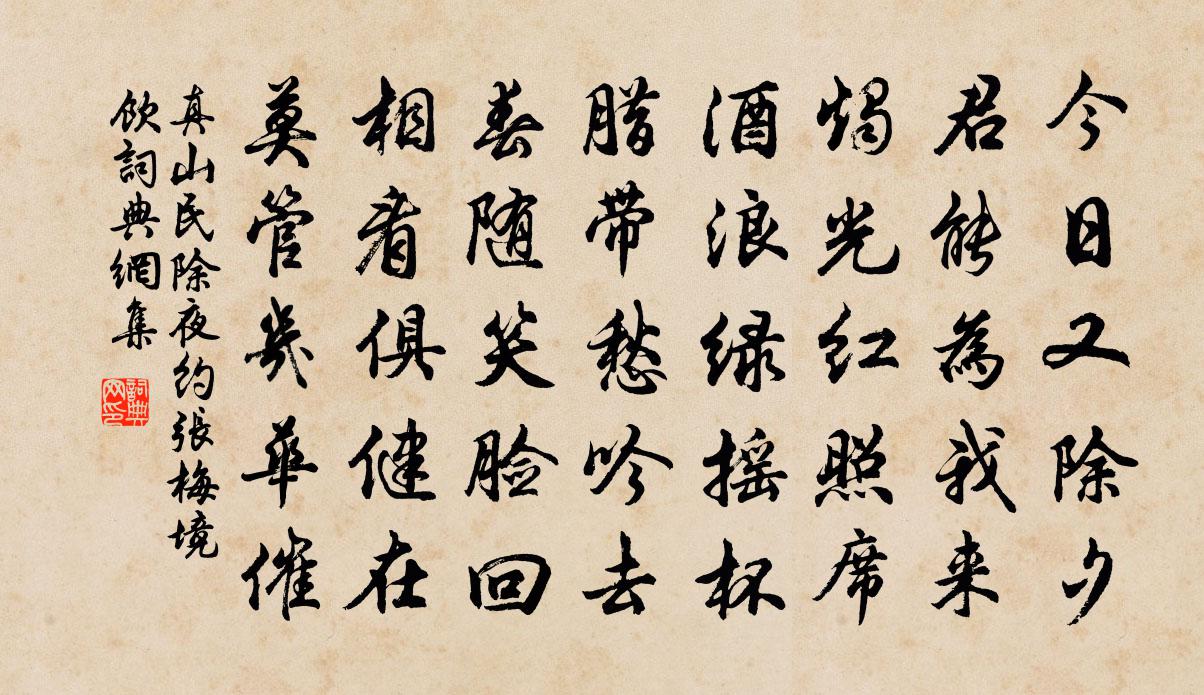 今日又除夕
君能為我来
燭光红照席
酒浪绿摇杯
腊带愁吟去
春随笑脸回
相看俱健在
莫管幾華催
真山民除夜约張梅境
飲詞典網集
詞典网印